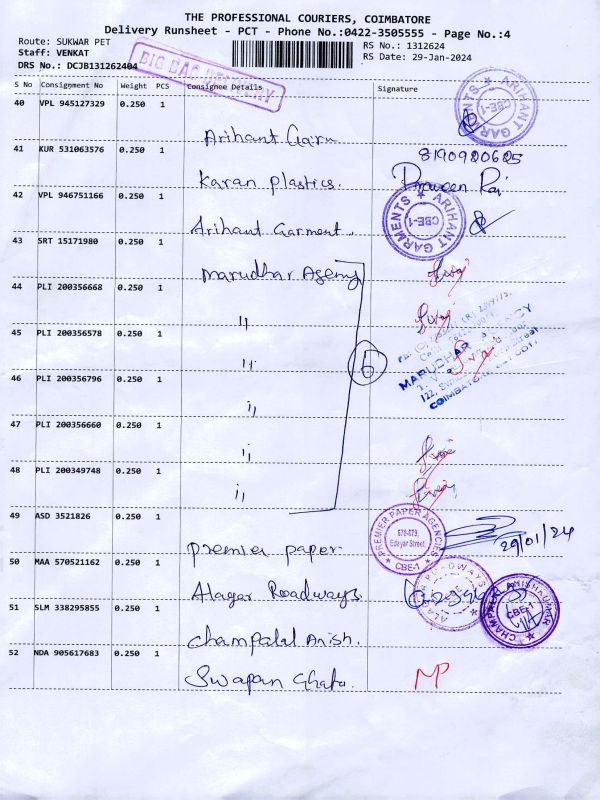 THE PROFESSIONAL COURIERS, COIMBATORE
Delivery Runsheet - PCT - Phone No.:0422-3505555 - Page No.:4
Route: SUKWAR PET
RS No.: 1312624
Staff: VENKAT
RS Date: 29-Jan-2024
DRS No.: DCJB131262404
BIG BAG DELIVERY
S No Consignment No Weight PCS Consignee Details Signature
40 VPL 945127329 0.250 1
Arihant Garm
ARIHANT GARMENTS CBE-1
41 KUR 531063576 0.250 1
8190920625
Karan plastics. Praveen Raj
42 VPL 946751166 0.250 1
Arihant Garment
ARIHANT GARMENTS CBE-1
43 SRT 15171980 0.250 1
Marudhar Agency
44 PLI 200356668 0.250 1
"
45 PLI 200356578 0.250 1
"
6
MARUDHAR AGENCY
46 PLI 200356796 0.250 1
"
47 PLI 200356660 0.250 1
"
48 PLI 200349748 0.250 1
"
49 ASD 3521826 0.250 1
premier paper
PREMIER PAPER AGENCIES Edayar Street, CBE-1
29/01/24
50 MAA 570521162 0.250 1
Alagar Roadways
51 SLM 338295855 0.250 1
Champalal Anish.
CBE-1
52 NDA 905617683 0.250 1
Swapan MP